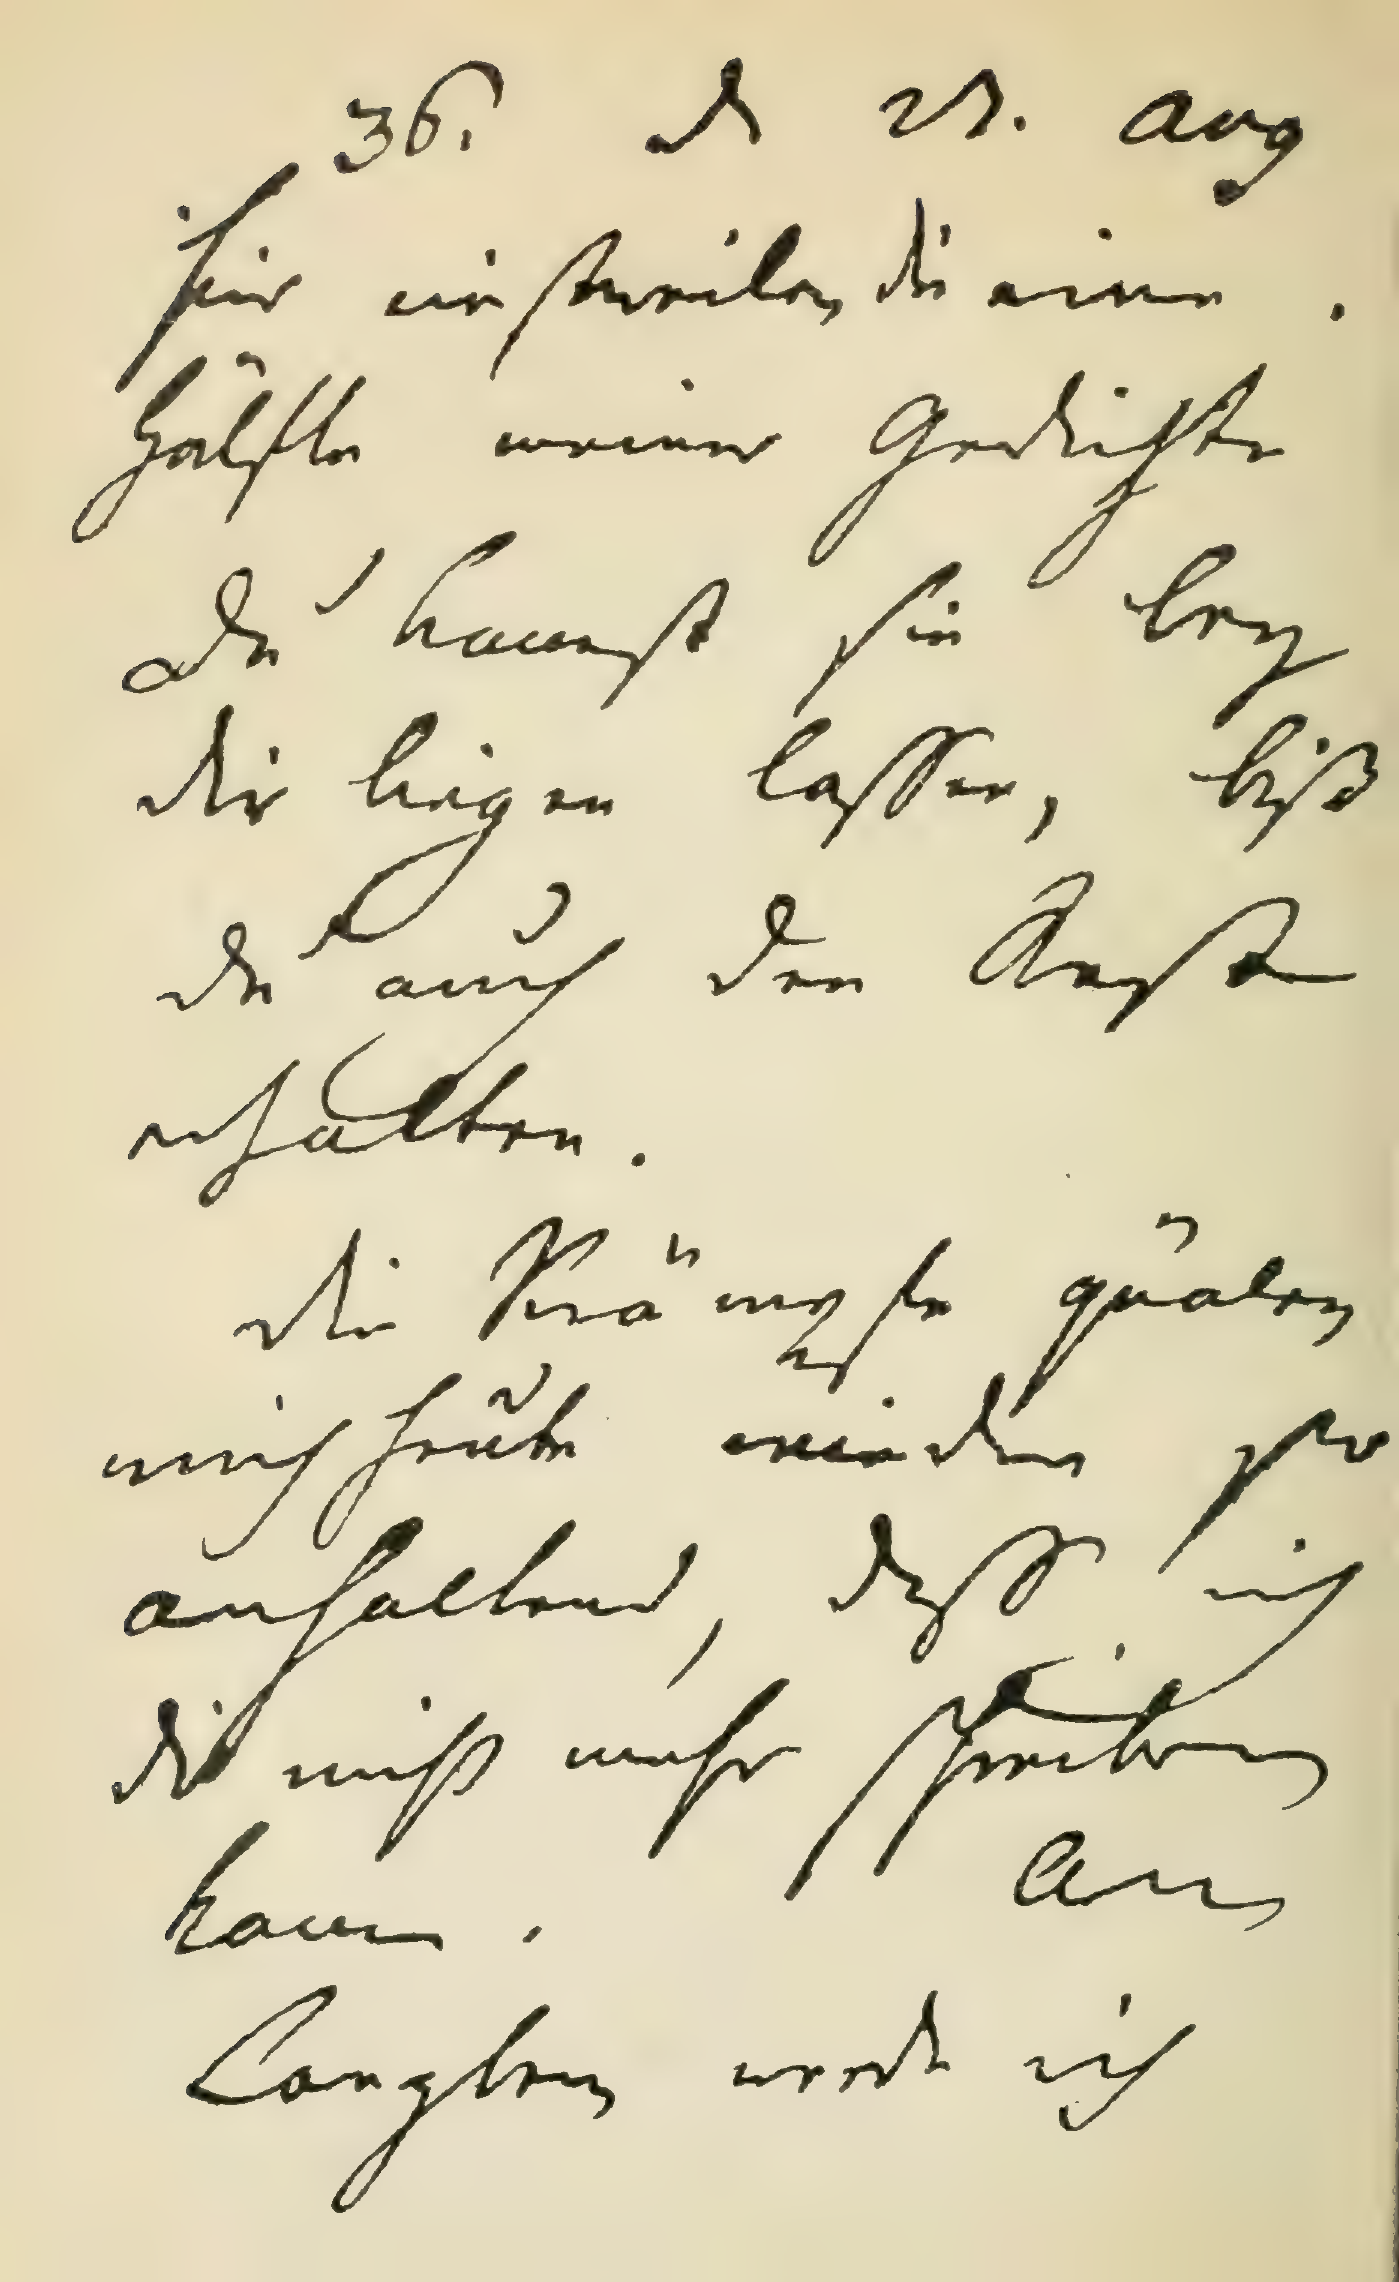 36. d 27. Aug
hier einstweilen die eine
Hälfte meiner Gedichte
du kannst sie bey
dir liegen lassen, biß
du auch den Rest
erhalten.
die Krämpfe quälen
mich heute wieder so
anhaltend, daß ich
dir nicht mehr schreiben
kann. An
Langbein werde ich